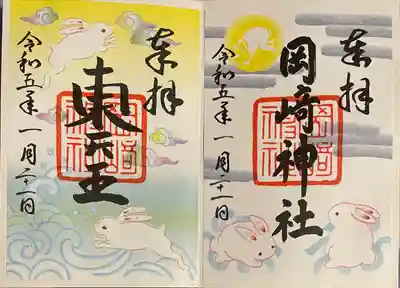 奉拝
岡崎神社
令和五年一月二十一日
奉拝
東天王
令和五年一月二十一日